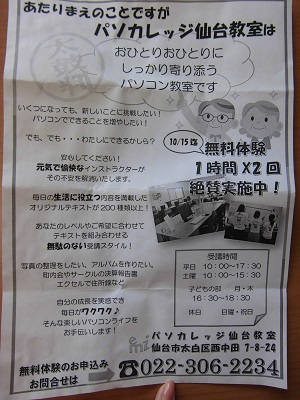 あたりまえのことですが
パソカレッジ仙台教室は
おひとりおひとりに
しっかり寄り添う
パソコン教室です
いくつになっても、新しいことに挑戦したい！
パソコンでできることを増やしたい！
でも、でも・・・わたしにできるかしら？
安心してください！
元気で愉快なインストラクターが
その不安を解消いたします！
毎日の生活に役立つ内容を満載した
オリジナルテキストが200種類以上！
あなたのレベルやご希望に合わせて
テキストを組み合わせる
無駄のない受講スタイル！
写真の整理をしたい、アルバムを作りたい、
町内会やサークルの決算報告書
エクセルで住所録など
自分の成長を実感でき
毎日がワクワク♪
そんな楽しいパソコンライフを
お手伝いします！
10/15迄
無料体験
1時間X2回
絶賛実施中！
受講時間
平日 10：00～17：30
土曜 10：00～15：30
子どもの部 月・木
16：30～18：30
休日 日曜・祝日
パソカレッジ仙台教室
仙台市太白区西中田 7-8-24
無料体験のお申込み
お問合せは
☎022-306-2234